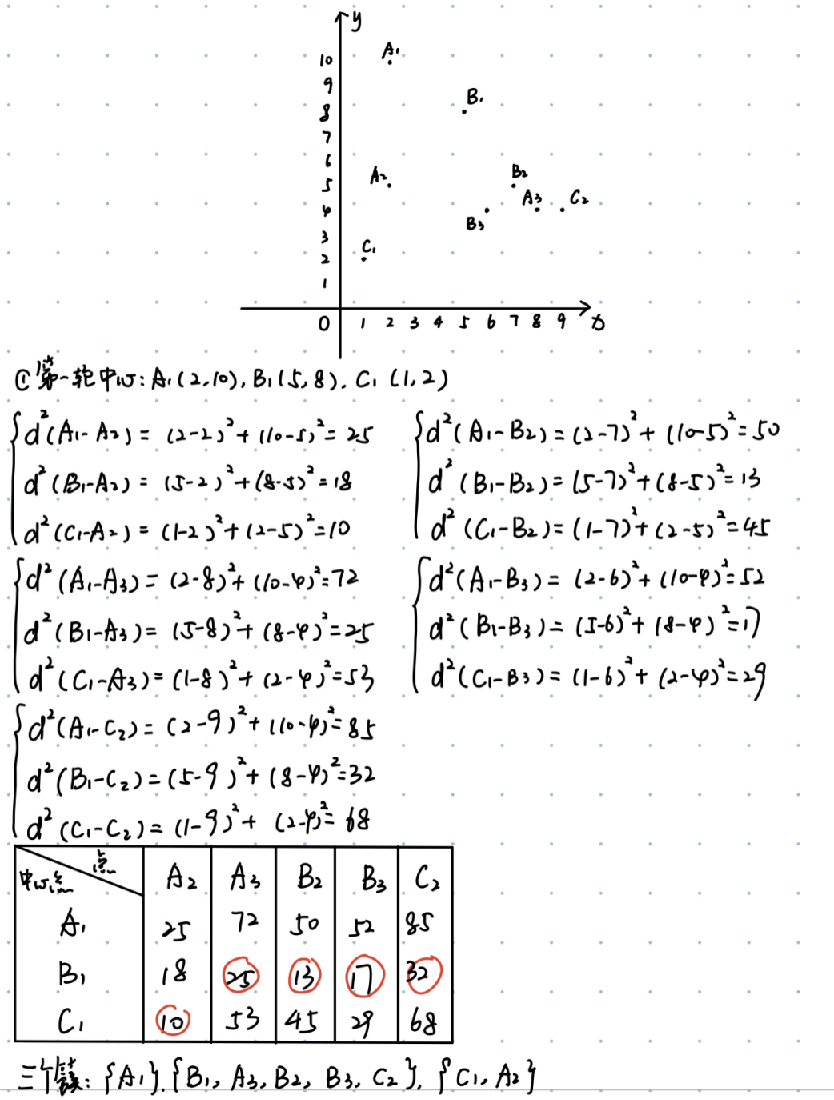 y
A₁
10
9
B₁
8
7
6
A₂
5
B₂
A₃
C₂
4
B₃
3
C₁
2
1
0 1 2 3 4 5 6 7 8 9 x
① 第一轮中心: A₁(2,10), B₁(5,8), C₁(1,2)
d²(A₁-A₂) = (2-2)²+(10-5)²=25
d²(B₁-A₂) = (5-2)²+(8-5)²=18
d²(C₁-A₂) = (1-2)²+(2-5)²=10
d²(A₁-B₂) = (2-7)²+(10-5)²=50
d²(B₁-B₂) = (5-7)²+(8-5)²=13
d²(C₁-B₂) = (1-7)²+(2-5)²=45
d²(A₁-A₃) = (2-8)²+(10-4)²=72
d²(B₁-A₃) = (5-8)²+(8-4)²=25
d²(C₁-A₃) = (1-8)²+(2-4)²=53
d²(A₁-B₃) = (2-6)²+(10-4)²=52
d²(B₁-B₃) = (5-6)²+(8-4)²=17
d²(C₁-B₃) = (1-6)²+(2-4)²=29
d²(A₁-C₂) = (2-9)²+(10-4)²=85
d²(B₁-C₂) = (5-9)²+(8-4)²=32
d²(C₁-C₂) = (1-9)²+(2-4)²=68
中心点 点 A₂ A₃ B₂ B₃ C₂
A₁ 25 72 50 52 85
B₁ 18 25 13 17 32
C₁ 10 53 45 29 68
三个簇: {A₁}, {B₁, A₃, B₂, B₃, C₂}, {C₁, A₂}